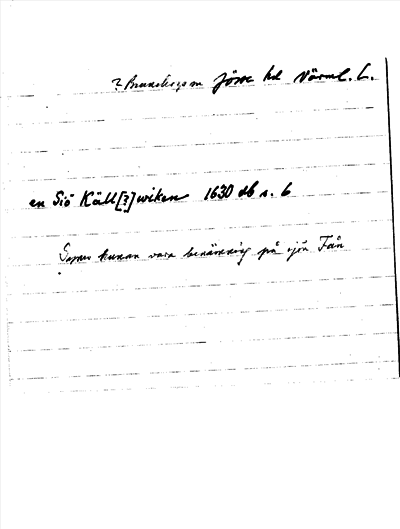 ? Brunskogs sn Jösse hd Värml. L.
en Siö Käll[?]wiken 1630 db s. 6
Synes kunna vara benämning på sjön Tån